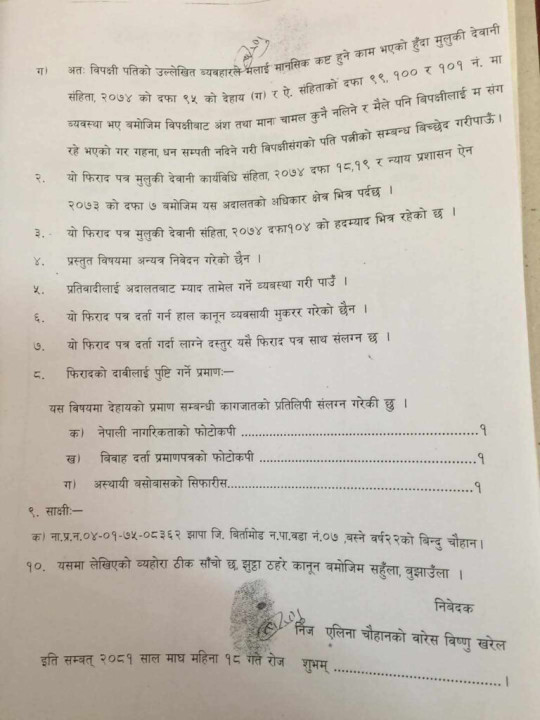 ग) अतः बिपक्षी पतिको उल्लेखित व्यवहारले मलाई मानसिक कष्ट हुने काम भएको हुँदा मुलुकी देवानी
संहिता, २०७४ को दफा ९५ को देहाय (ग) र ऐ. संहिताको दफा ९९, १०० र १०१ नं. मा
व्यवस्था भए बमोजिम बिपक्षीबाट अंश तथा माना चामल कुनै नलिने र मैले पनि बिपक्षीलाई म संग
रहे भएको गर गहना, धन सम्पती नदिने गरी बिपक्षीसंगको पति पत्नीको सम्बन्ध बिच्छेद गरीपाऊँ।
२. यो फिराद पत्र मुलुकी देवानी कार्यविधि संहिता, २०७४ दफा १८,१९ र न्याय प्रशासन ऐन
२०७३ को दफा ७ बमोजिम यस अदालतको अधिकार क्षेत्र भित्र पर्दछ ।
३. यो फिराद पत्र मुलुकी देवानी संहिता, २०७४ दफा१०४ को हदम्याद भित्र रहेको छ ।
४. प्रस्तुत विषयमा अन्यत्र निवेदन गरेको छैन ।
५. प्रतिवादीलाई अदालतबाट म्याद तामेल गर्ने व्यवस्था गरी पाउँ ।
६. यो फिराद पत्र दर्ता गर्न हाल कानून व्यवसायी मुकरर गरेको छैन ।
७. यो फिराद पत्र दर्ता गर्दा लाग्ने दस्तुर यसै फिराद पत्र साथ संलग्न छ ।
८. फिरादको दाबीलाई पुष्टि गर्ने प्रमाणः—
यस बिषयमा देहायको प्रमाण सम्बन्धी कागजातको प्रतिलिपी संलग्न गरेकी छु ।
क) नेपाली नागरिकताको फोटोकपी ....................................................१
ख) बिबाह दर्ता प्रमाणपत्रको फोटोकपी ................................................१
ग) अस्थायी बसोबासको सिफारीस......................................................१
९. साक्षीः—
क) ना.प्र.न.०४-०१-७५-०८३६२ झापा जि. बिर्तामोड न.पा.वडा नं.०७ ,बस्ने वर्ष२२को बिन्दु चौहान।
१०. यसमा लेखिएको व्यहोरा ठीक साँचो छ, झुठ्ठा ठहरे कानून बमोजिम सहुँला, बुझाउँला ।
निबेदक
निज एलिना चौहानको वारेस विष्णु खरेल
इति सम्बत् २०८१ साल माघ महिना १८ गते रोज शुभम् ..............................।